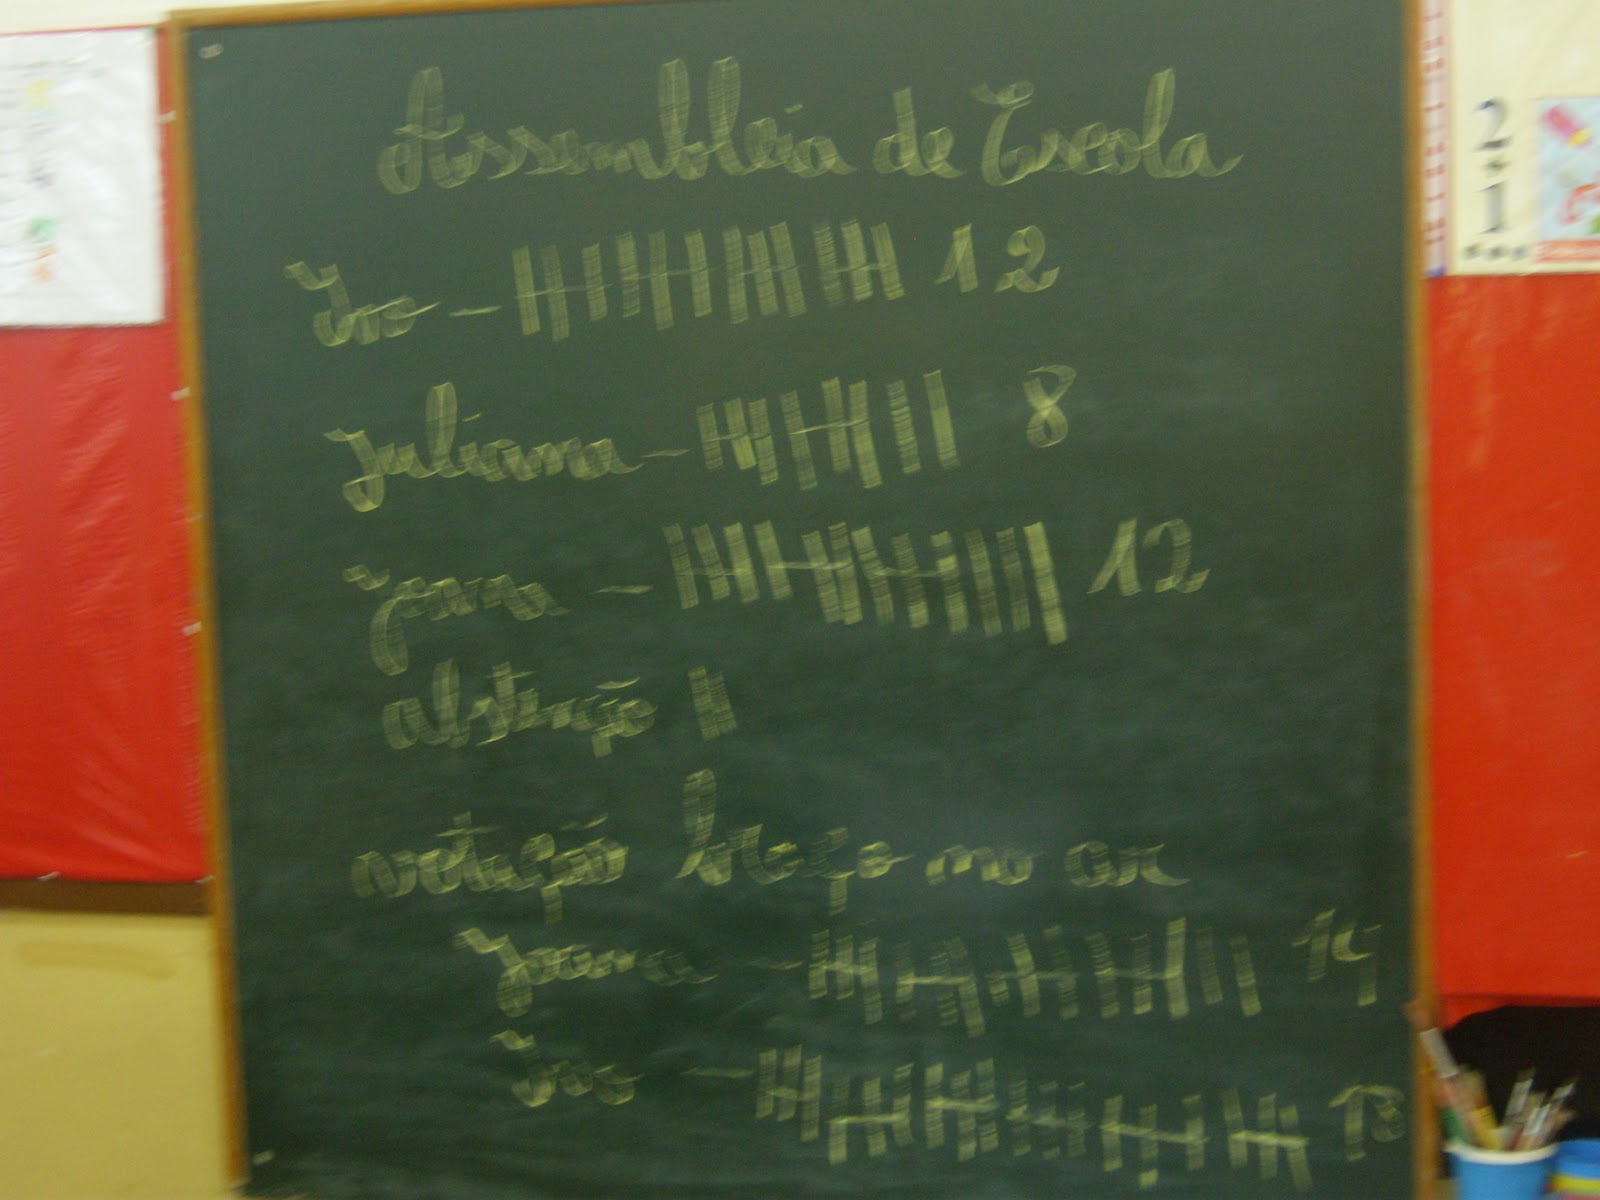 Assembléia de Escola
Ivo - 12
Juliana - 8
Joana - 12
abstenção
votação braço no ar
Joana - 14
Ivo - 18
2
1